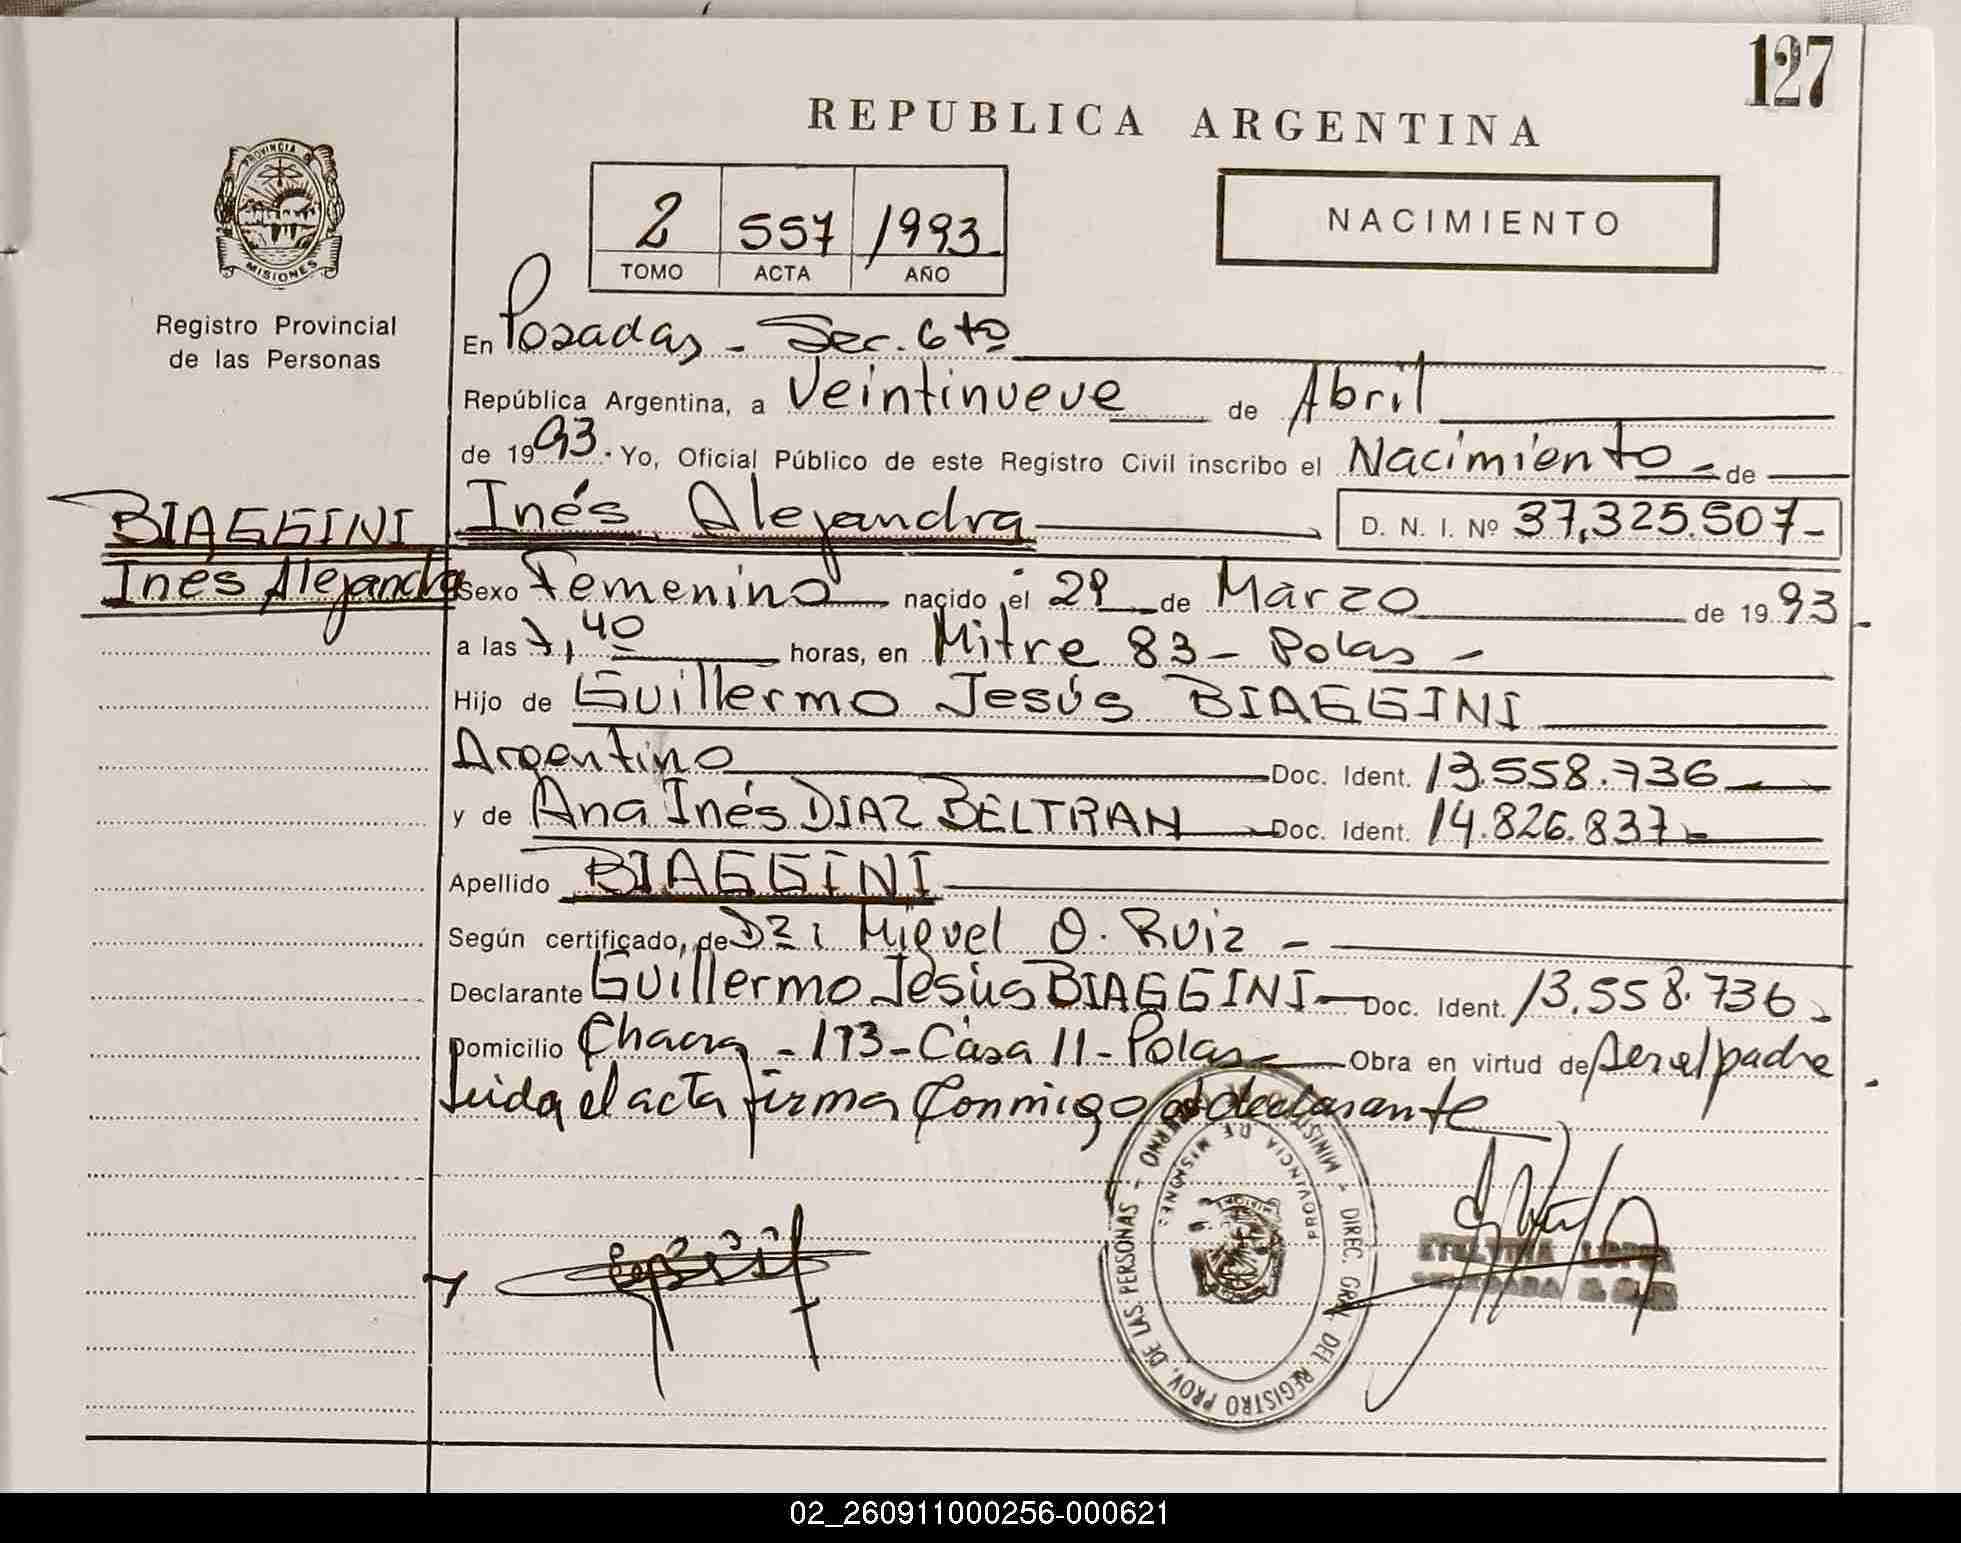 127
REPUBLICA ARGENTINA
PROVINCIA DE
MISIONES
Registro Provincial
de las Personas
2 557 1993
TOMO ACTA AÑO
NACIMIENTO
En Posadas - Sec. 6ta
República Argentina, a Veintinueve de Abril
de 1993. Yo, Oficial Público de este Registro Civil inscribo el Nacimiento - de
BIAGGINI
Inés Alejandra
Inés Alejandra D. N. I. Nº 37,325.507-
Sexo Femenino nacido el 29 de Marzo de 1993
a las 7,40 horas, en Mitre 83 - Pdas -
Hijo de Guillermo Jesús BIAGGINI
Argentino Doc. Ident. 13.558.736
y de Ana Inés DIAZ BELTRAN Doc. Ident. 14.826.837-
Apellido BIAGGINI
Según certificado, de Dr: Miguel O. Ruiz -
Declarante Guillermo Jesús BIAGGINI - Doc. Ident. 13.558.736-
Domicilio Chacra - 193 - Casa 11 - Pdas - Obra en virtud de ser el padre
Leida el acta firma conmigo el declarante
MINISTERIO DE GOBIERNO - DIREC. GRAL. DEL REGISTRO PROV. DE LAS PERSONAS -
PROVINCIA DE MISIONES
02_260911000256-000621